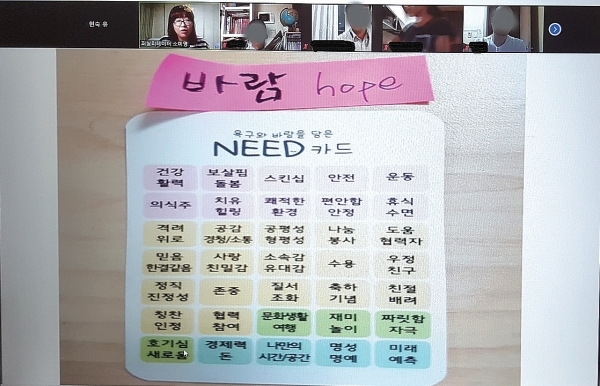 현숙 유
바람 hope
욕구와 바람을 담은
NEED 카드
건강 활력
보살핌 돌봄
스킨십
안전
운동
의식주
치유 힐링
쾌적한 환경
편안함 안정
휴식 수면
격려 위로
공감 경청/소통
공평성 형평성
나눔 봉사
도움 협력자
믿음 한결같음
사랑 친밀감
소속감 유대감
수용
우정 친구
정직 진정성
존중
질서 조화
축하 기념
친절 배려
칭찬 인정
협력 참여
문화생활 여행
재미 놀이
짜릿함 자극
호기심 새로움
경제력 돈
나만의 시간/공간
명성 명예
미래 예측